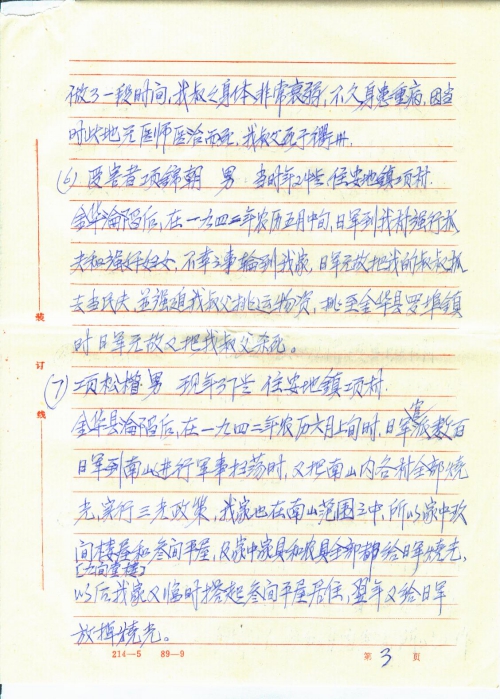 做了一段时间,我叔父身体非常衰弱,不久身患重病,因当
时此地无医师医治而死,我叔父死于
(6) 受害者项锦朝 男 当时年24岁 住安地镇项村.
金华沦陷后,在一九四二年农历五月中旬,日军到我村强行抓
夫和强奸妇女,不幸之事轮到我家,日军无故把我的叔叔抓
去当民夫,并强迫我叔父挑运物资,挑至金华县罗埠镇
时日军无故又把我叔父杀死。
(7) 项松楷 男 现年37岁 住安地镇项村.
金华县沦陷后,在一九四二年农历六月上旬时,日军派数百
日军到南山进行军事扫荡时,又把南山内各村全部烧
光,实行三光政策,我家也在南山范围之中,所以家中玖
间楼屋和叁间平屋,及家中家具和农具全部都给日军烧光,
以后我家又临时搭起叁间平屋居住,翌年又给日军
放掉烧光。
装
订
线
214—5 89—9
第 3 页